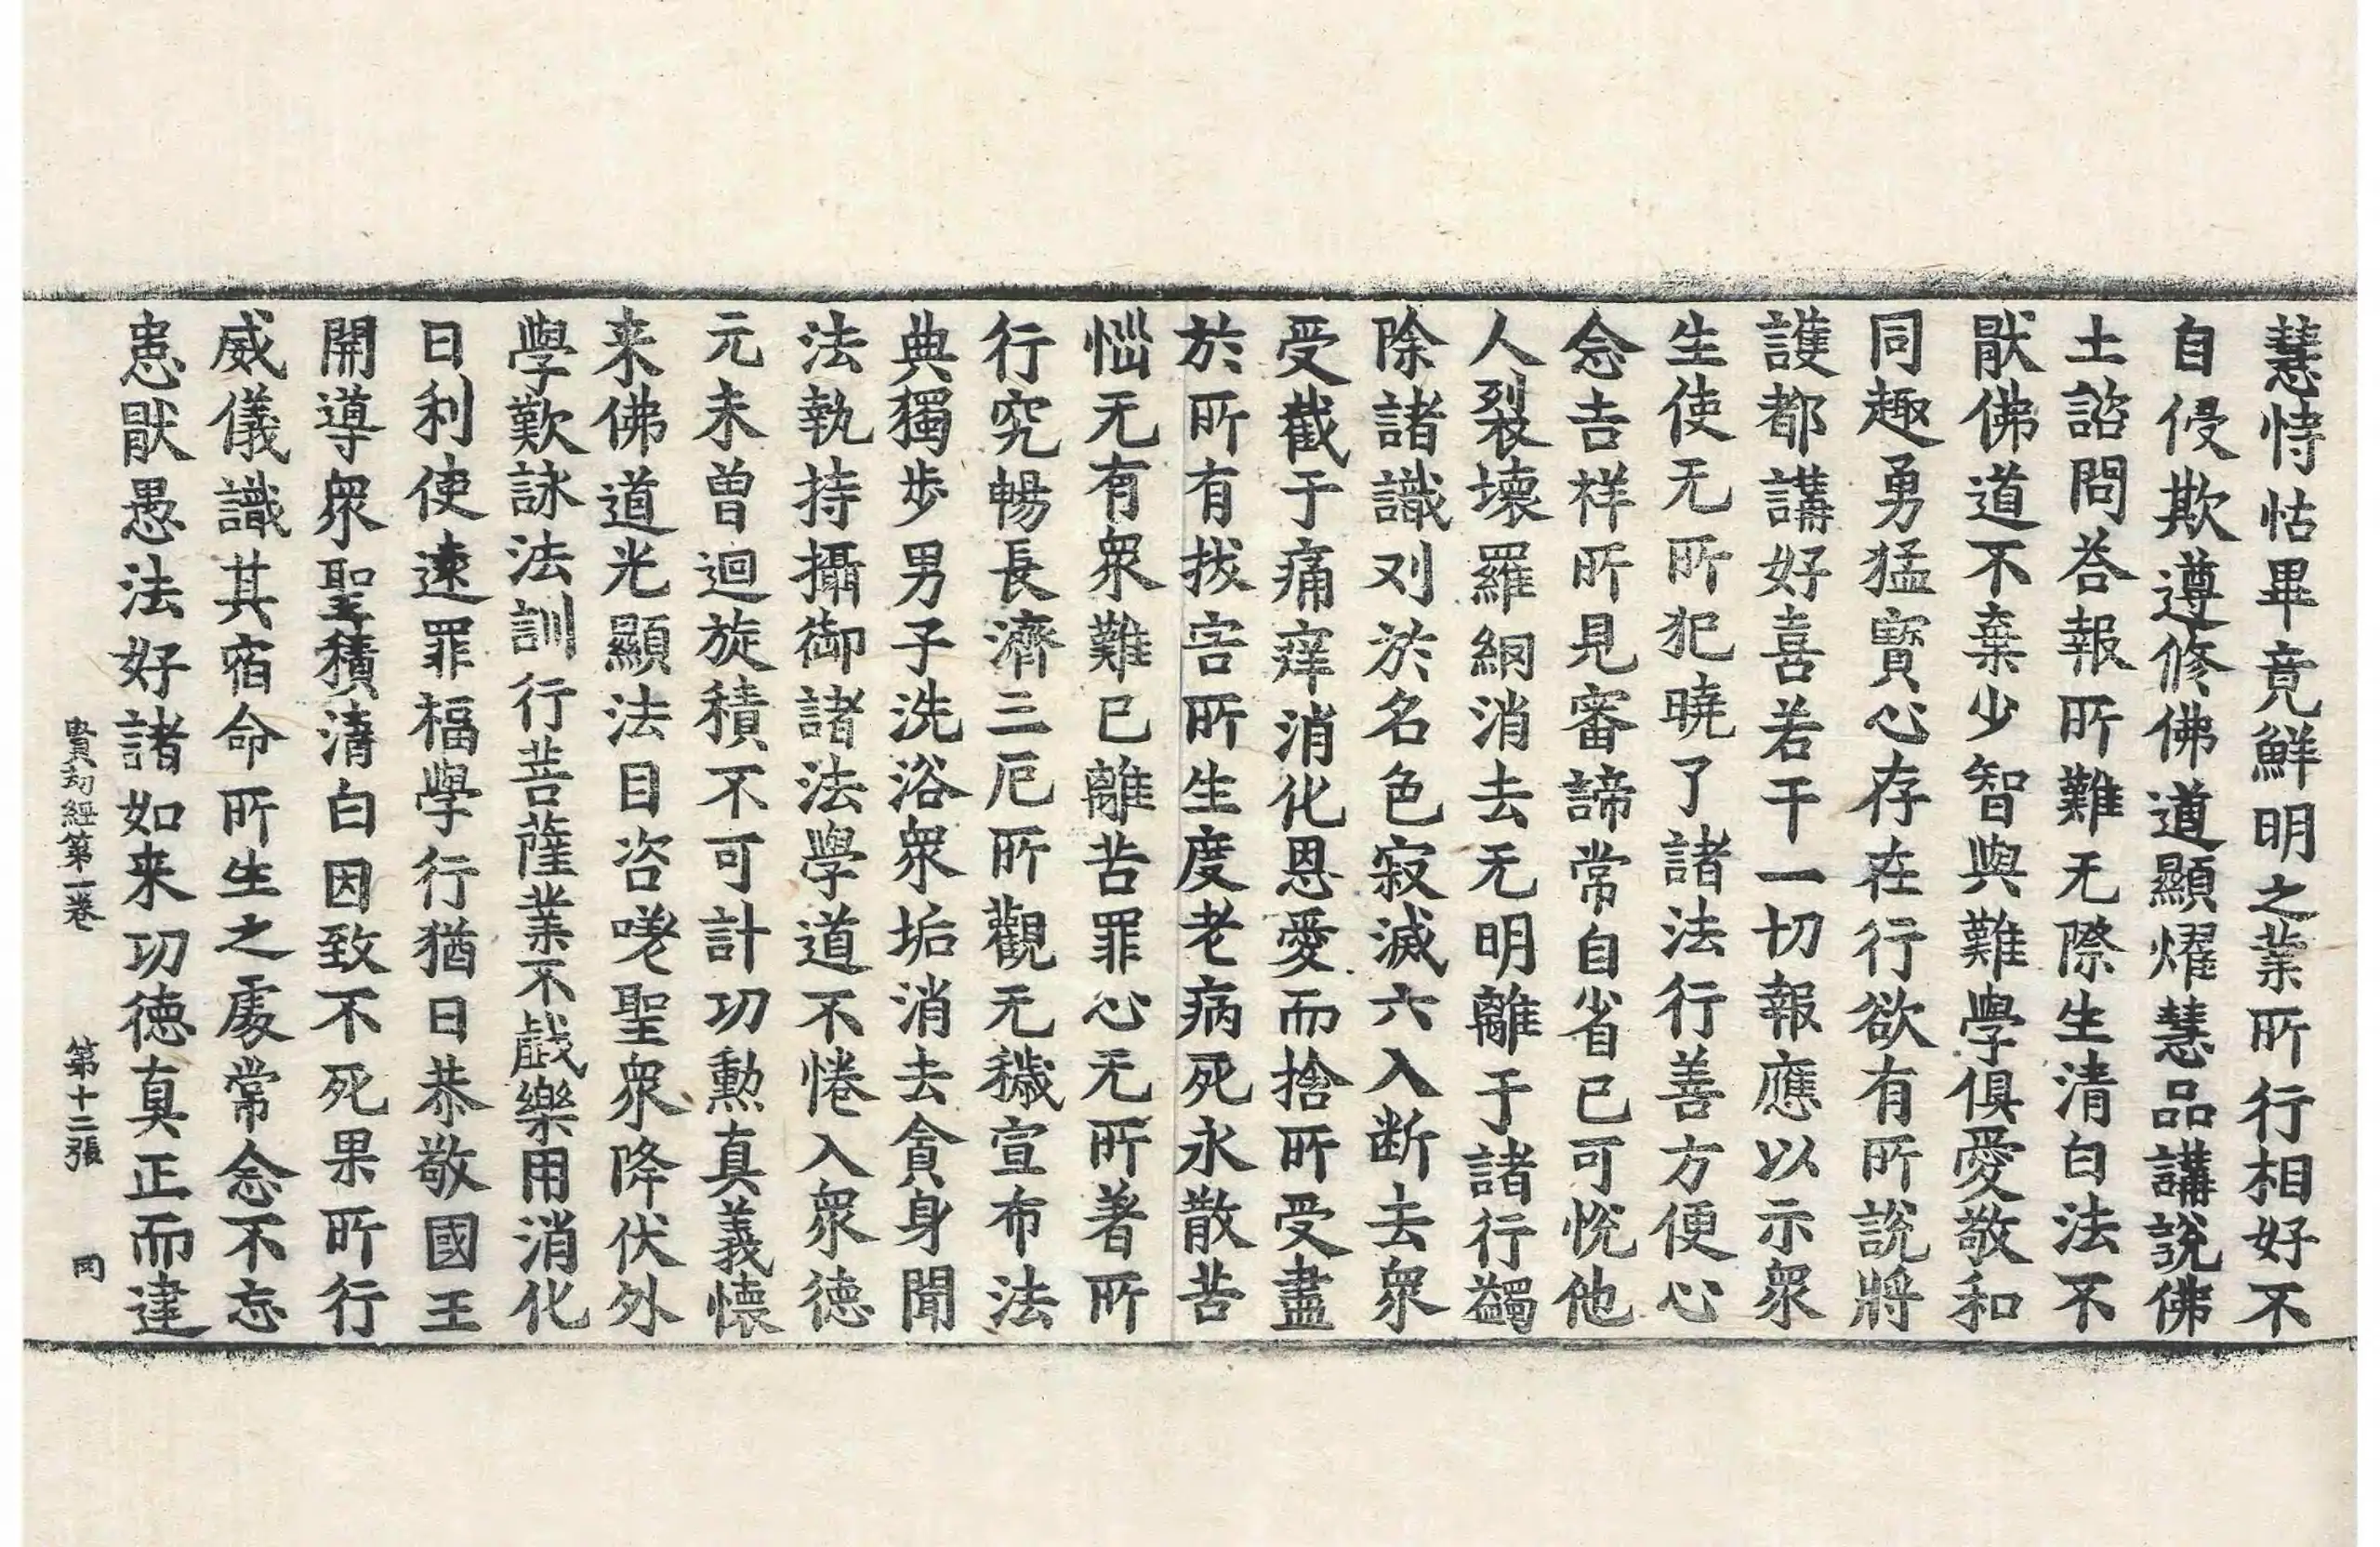 慧恃怙畢竟鮮明之業所行相好不
自侵欺遵修佛道顯燿慧品講說佛
土諮問荅報所難无際生清白法不
猒佛道不棄少智與難學俱愛敬和
同趣勇猛寳心存在行欲有所說將
護都講好喜若干一切報應以示衆
生使无所犯曉了諸法行善方便心
念吉祥所見審諦常自省已可悅他
人裂壞羅網消去无明離于諸行蠲
除諸識刈於名色寂滅六入断去衆
受截于痛痒消化恩愛而捨所受盡
於所有拔害所生度老病死永散苦
惱无有衆難已離苦罪心无所著所
行究暢長濟三厄所觀无穢宣布法
典獨步男子洗浴衆垢消去貪身聞
法執持攝御諸法學道不惓入衆德
元未曾迴旋積不可計功勲真義懷
来佛道光顯法目咨嗟聖衆降伏外
學歎詠法訓行菩薩業不戲樂用消化
日利使速罪福學行猶日恭敬國王
開導衆聖積清白因致不死果所行
威儀識其宿命所生之處常念不忘
恚猒愚法好諸如来功德真正而建
賢劫經第一卷 第十二張 冈